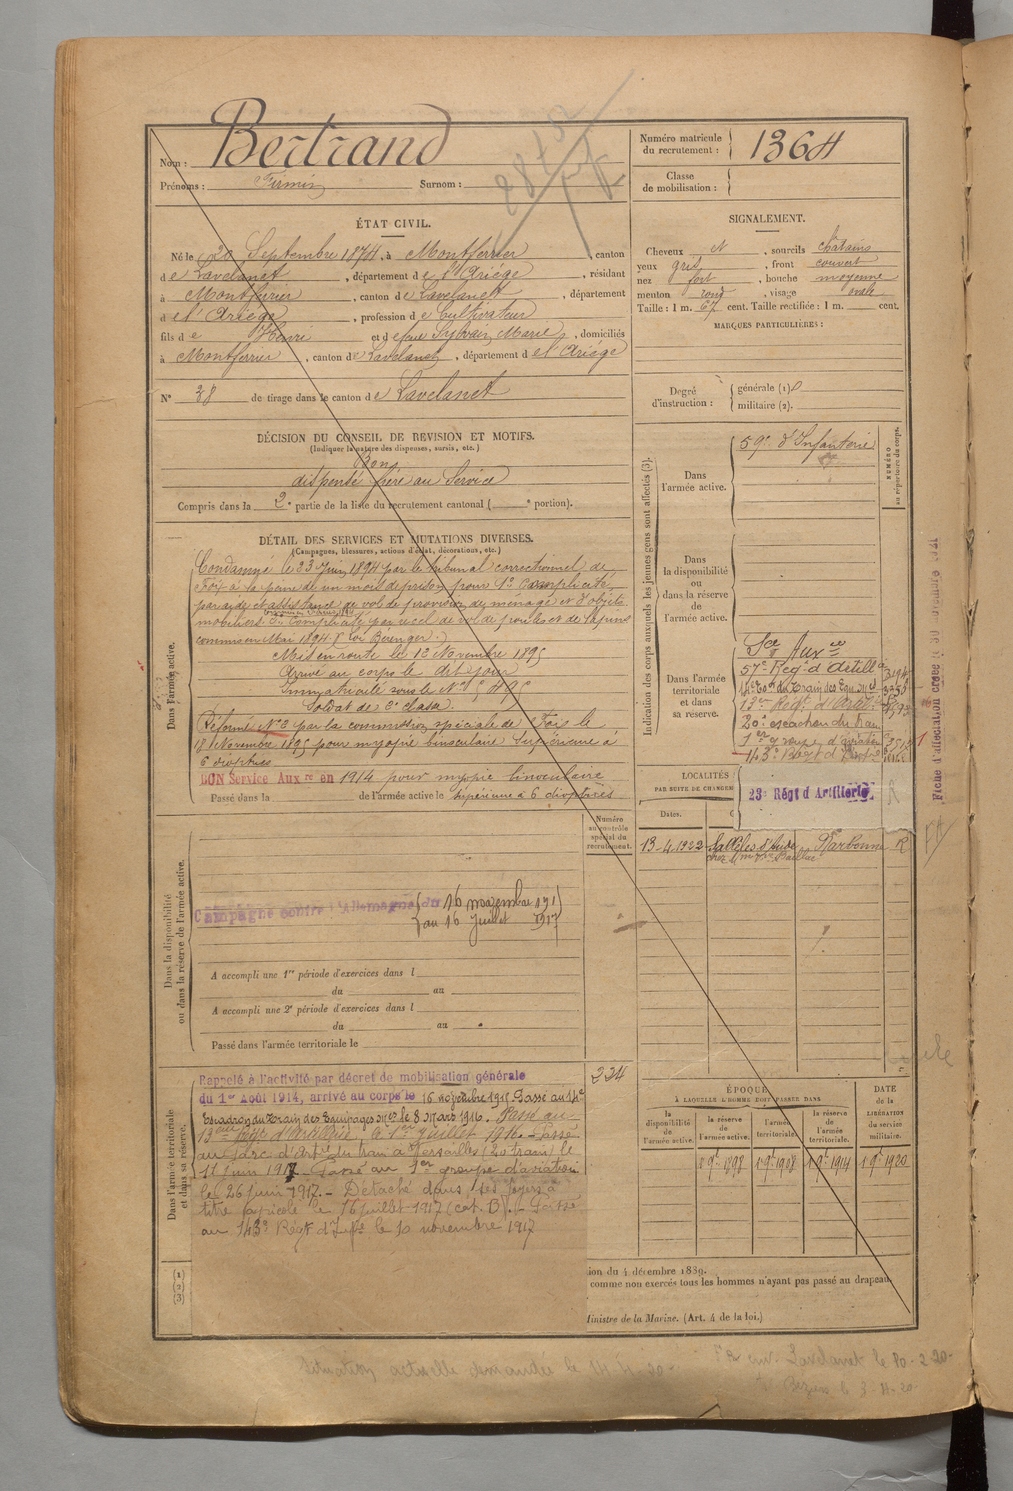 Nom : Bertrand
Prénoms : Firmin Surnom :
Numéro matricule du recrutement : 1364
Classe de mobilisation :
ÉTAT CIVIL.
Né le 20 Septembre 1874, à Montferrier, canton
de Lavelanet, département de l'Ariége, résidant
à Montferrier, canton de Lavelanet, département
de l'Ariége, profession de Cultivateur
fils de Henri et de feue Sylvain Marie, domiciliés
à Montferrier, canton de Lavelanet, département de l'Ariége
N° 38 de tirage dans le canton de Lavelanet
DÉCISION DU CONSEIL DE REVISION ET MOTIFS.
(Indiquer la nature des dispenses, sursis, etc.)
Bon
dispensé frère au Service
Compris dans la 2e partie de la liste du recrutement cantonal ( e portion).
SIGNALEMENT.
Cheveux N, sourcils châtains
yeux gris, front couvert
nez fort, bouche moyenne
menton rond, visage ovale
Taille : 1 m. 67 cent. Taille rectifiée : 1 m. cent.
MARQUES PARTICULIÈRES :
Degré d'instruction :
générale (1)
militaire (2).
DÉTAIL DES SERVICES ET MUTATIONS DIVERSES.
(Campagnes, blessures, actions d'éclat, décorations, etc.)
Dans l'armée active.
Condamné le 23 Juin 1894 par le tribunal correctionnel de
Foix à la peine de un mois de prison pour 1° Complicité
par aide et assistance de vol de provision de ménage et d'objets
mobiliers 2° Complicité par recel de vol de poules et de lapins
commis en Mai 1894 Loi Bérenger.
Mis en route le 12 Novembre 1895
Arrivé au corps le dit jour
Immatriculé sous le N°
Soldat de 2e classe.
Réformé N° 2 par la commission spéciale de Foix le
18 Novembre 1895 pour myopie binoculaire supérieure à
6 dioptries
BON Service Auxre en 1914 pour myopie binoculaire
Passé dans la de l'armée active le supérieure à 6 dioptries
Indication des corps auxquels les jeunes gens sont affectés (3).
NUMÉRO au répertoire du corps.
Dans l'armée active.
59e d'Infanterie
Dans la disponibilité ou dans la réserve de l'armée active.
Dans l'armée territoriale et dans sa réserve.
Sce Auxre
57e Régt d'Artillie
14e Eon du Train des Eq. Mres
13e Régt d'Artie
20e escadron du train
1er groupe d'aviation
143e Régt d'Infie
23e Régt d'Artillerie
Fiche d'affectation créée le 30 novembre 1921
LOCALITÉS
PAR SUITE DE CHANGEM
Dates.
13-4-1922 Sallèles d'Aude Narbonne R
chez Mme Vve
Dans la disponibilité ou dans la réserve de l'armée active.
Numéro au contrôle spécial du recrutement.
Campagne contre l'Allemagne du 16 novembre 191
au 16 Juillet 1917
A accompli une 1re période d'exercices dans l
du au
A accompli une 2e période d'exercices dans l
du au
Passé dans l'armée territoriale le
Dans l'armée territoriale et dans sa réserve.
Rappelé à l'activité par décret de mobilisation générale
du 1er Août 1914, arrivé au corps le 16 novembre 1915 Passé au 14e
Escadron du Train des Equipages Mres le 8 Mars 1916. Passé au
13ème Régt d'Artillerie, le 1er Juillet 1916. Passé
au Parc d'Artie du train à Versailles (20 train) le
11 juin 1917. Passé au 1er groupe d'aviation
le 26 juin 1917. – Détaché dans ses foyers à
titre agricole le 16 juillet 1917 (cat. B). – Passé
au 143e Régt d'Infie le 10 novembre 1917
224
ÉPOQUE
À LAQUELLE L'HOMME DOIT PASSER DANS
la disponibilité de l'armée active.
la réserve de l'armée active.
l'armée territoriale.
la réserve de l'armée territoriale.
DATE de la LIBÉRATION du service militaire.
1 9bre 1898 1 9bre 1908 1 9bre 1914 1 9bre 1920
(1)
(2)
(3)
ion du 4 décembre 1889.
comme non exercés tous les hommes n'ayant pas passé au drapeau
Ministre de la Marine. (Art. 4 de la loi.)
Situation actuelle demandée le 14-4-20